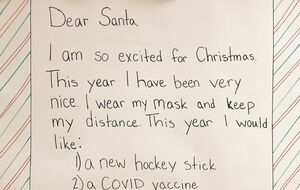 Dear Santa,
I am so excited for Christmas.
This year I have been very
nice. I wear my mask and keep
my distance. This year I would
like:
1) a new hockey stick
2) a COVID vaccine